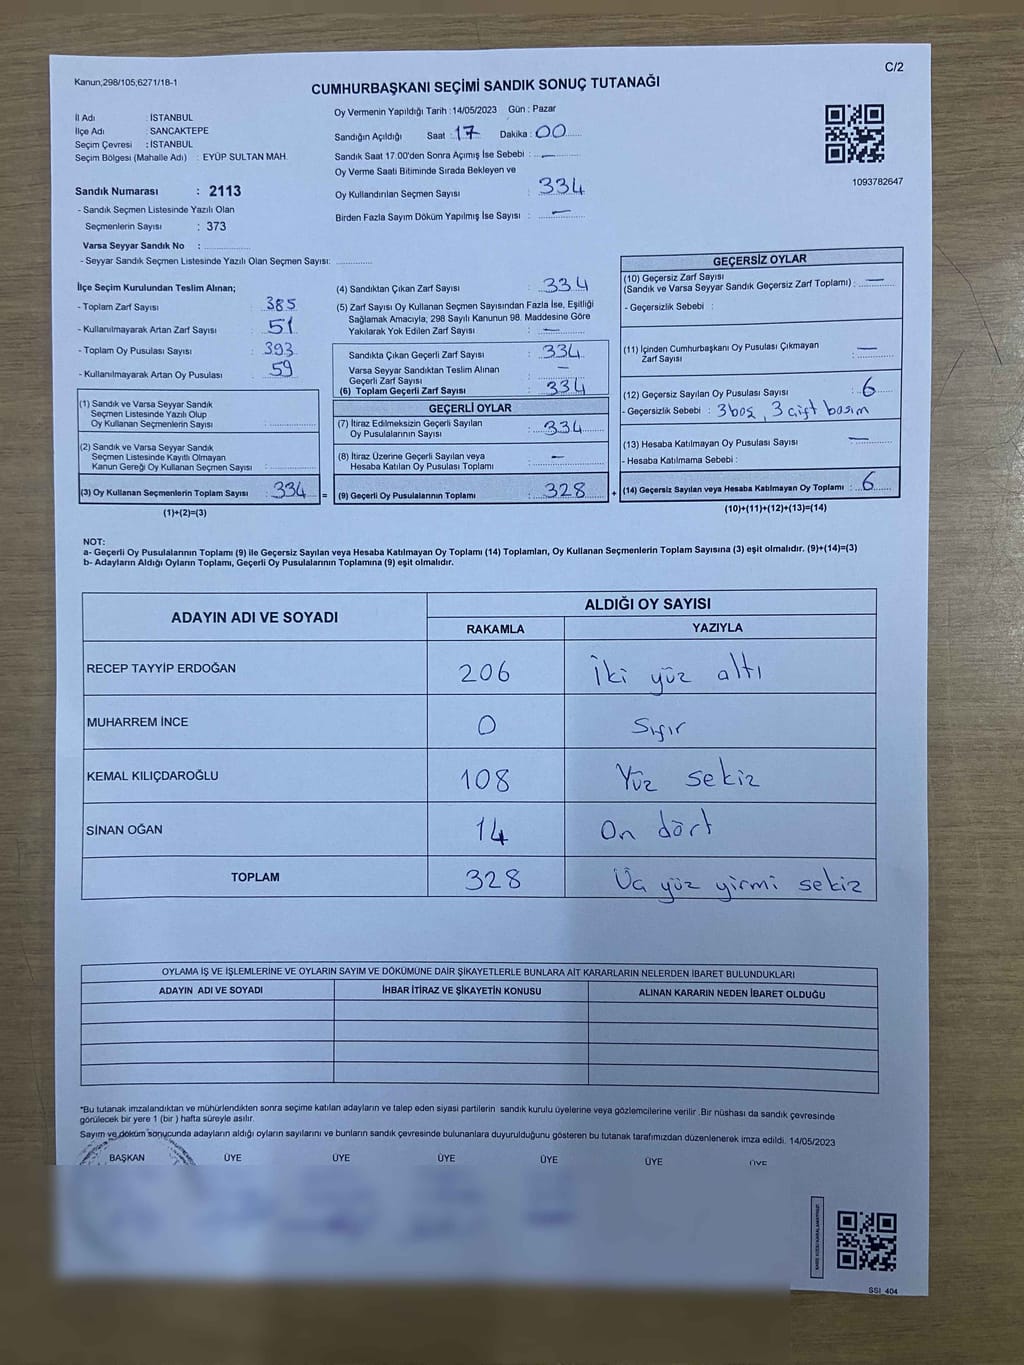 Kanun;298/105;6271/18-1
C/2
CUMHURBAŞKANI SEÇİMİ SANDIK SONUÇ TUTANAĞI
İl Adı : İSTANBUL
İlçe Adı : SANCAKTEPE
Seçim Çevresi : İSTANBUL
Seçim Bölgesi (Mahalle Adı) : EYÜP SULTAN MAH.
Sandık Numarası : 2113
- Sandık Seçmen Listesinde Yazılı Olan
Seçmenlerin Sayısı : 373
Varsa Seyyar Sandık No :
- Seyyar Sandık Seçmen Listesinde Yazılı Olan Seçmen Sayısı:
Oy Vermenin Yapıldığı Tarih : 14/05/2023 Gün : Pazar
Sandığın Açıldığı Saat : 17 Dakika : 00
Sandık Saat 17.00'den Sonra Açımış İse Sebebi : —
Oy Verme Saati Bitiminde Sırada Bekleyen ve
Oy Kullandırılan Seçmen Sayısı : 334
Birden Fazla Sayım Döküm Yapılmış İse Sayısı : —
1093782647
İlçe Seçim Kurulundan Teslim Alınan;
- Toplam Zarf Sayısı : 385
- Kullanılmayarak Artan Zarf Sayısı : 51
- Toplam Oy Pusulası Sayısı : 393
- Kullanılmayarak Artan Oy Pusulası : 59
(1) Sandık ve Varsa Seyyar Sandık
Seçmen Listesinde Yazılı Olup
Oy Kullanan Seçmenlerin Sayısı :
(2) Sandık ve Varsa Seyyar Sandık
Seçmen Listesinde Kayıtlı Olmayan
Kanun Gereği Oy Kullanan Seçmen Sayısı :
(3) Oy Kullanan Seçmenlerin Toplam Sayısı : 334 =
(1)+(2)=(3)
(4) Sandıktan Çıkan Zarf Sayısı : 334
(5) Zarf Sayısı Oy Kullanan Seçmen Sayısından Fazla İse, Eşitliği
Sağlamak Amacıyla, 298 Sayılı Kanunun 98. Maddesine Göre
Yakılarak Yok Edilen Zarf Sayısı : —
Sandıkta Çıkan Geçerli Zarf Sayısı : 334
Varsa Seyyar Sandıktan Teslim Alınan
Geçerli Zarf Sayısı : —
(6) Toplam Geçerli Zarf Sayısı : 334
GEÇERLİ OYLAR
(7) İtiraz Edilmeksizin Geçerli Sayılan
Oy Pusulalarının Sayısı : 334
(8) İtiraz Üzerine Geçerli Sayılan veya
Hesaba Katılan Oy Pusulası Toplamı : —
(9) Geçerli Oy Pusulalarının Toplamı : 328 +
GEÇERSİZ OYLAR
(10) Geçersiz Zarf Sayısı
(Sandık ve Varsa Seyyar Sandık Geçersiz Zarf Toplamı) : —
- Geçersizlik Sebebi :
(11) İçinden Cumhurbaşkanı Oy Pusulası Çıkmayan
Zarf Sayısı : —
(12) Geçersiz Sayılan Oy Pusulası Sayısı : 6
- Geçersizlik Sebebi : 3 boş, 3 çift basım
(13) Hesaba Katılmayan Oy Pusulası Sayısı : —
- Hesaba Katılmama Sebebi :
(14) Geçersiz Sayılan veya Hesaba Katılmayan Oy Toplamı : 6
(10)+(11)+(12)+(13)=(14)
NOT:
a- Geçerli Oy Pusulalarının Toplamı (9) ile Geçersiz Sayılan veya Hesaba Katılmayan Oy Toplamı (14) Toplamları, Oy Kullanan Seçmenlerin Toplam Sayısına (3) eşit olmalıdır. (9)+(14)=(3)
b- Adayların Aldığı Oyların Toplamı, Geçerli Oy Pusulalarının Toplamına (9) eşit olmalıdır.
ADAYIN ADI VE SOYADI ALDIĞI OY SAYISI
RAKAMLA YAZIYLA
RECEP TAYYİP ERDOĞAN 206 İki yüz altı
MUHARREM İNCE 0 Sıfır
KEMAL KILIÇDAROĞLU 108 Yüz sekiz
SİNAN OĞAN 14 On dört
TOPLAM 328 Üç yüz yirmi sekiz
OYLAMA İŞ VE İŞLEMLERİNE VE OYLARIN SAYIM VE DÖKÜMÜNE DAİR ŞİKAYETLERLE BUNLARA AİT KARARLARIN NELERDEN İBARET BULUNDUKLARI
ADAYIN ADI VE SOYADI İHBAR İTİRAZ VE ŞİKAYETİN KONUSU ALINAN KARARIN NEDEN İBARET OLDUĞU
*Bu tutanak imzalandıktan ve mühürlendikten sonra seçime katılan adayların ve talep eden siyasi partilerin sandık kurulu üyelerine veya gözlemcilerine verilir .Bir nüshası da sandık çevresinde
görülecek bir yere 1 (bir ) hafta süreyle asılır.
Sayım ve döküm sonucunda adayların aldığı oyların sayılarını ve bunların sandık çevresinde bulunanlara duyurulduğunu gösteren bu tutanak tarafımızdan düzenlenerek imza edildi. 14/05/2023
BAŞKAN ÜYE ÜYE ÜYE ÜYE ÜYE ÜYE
SSI_404